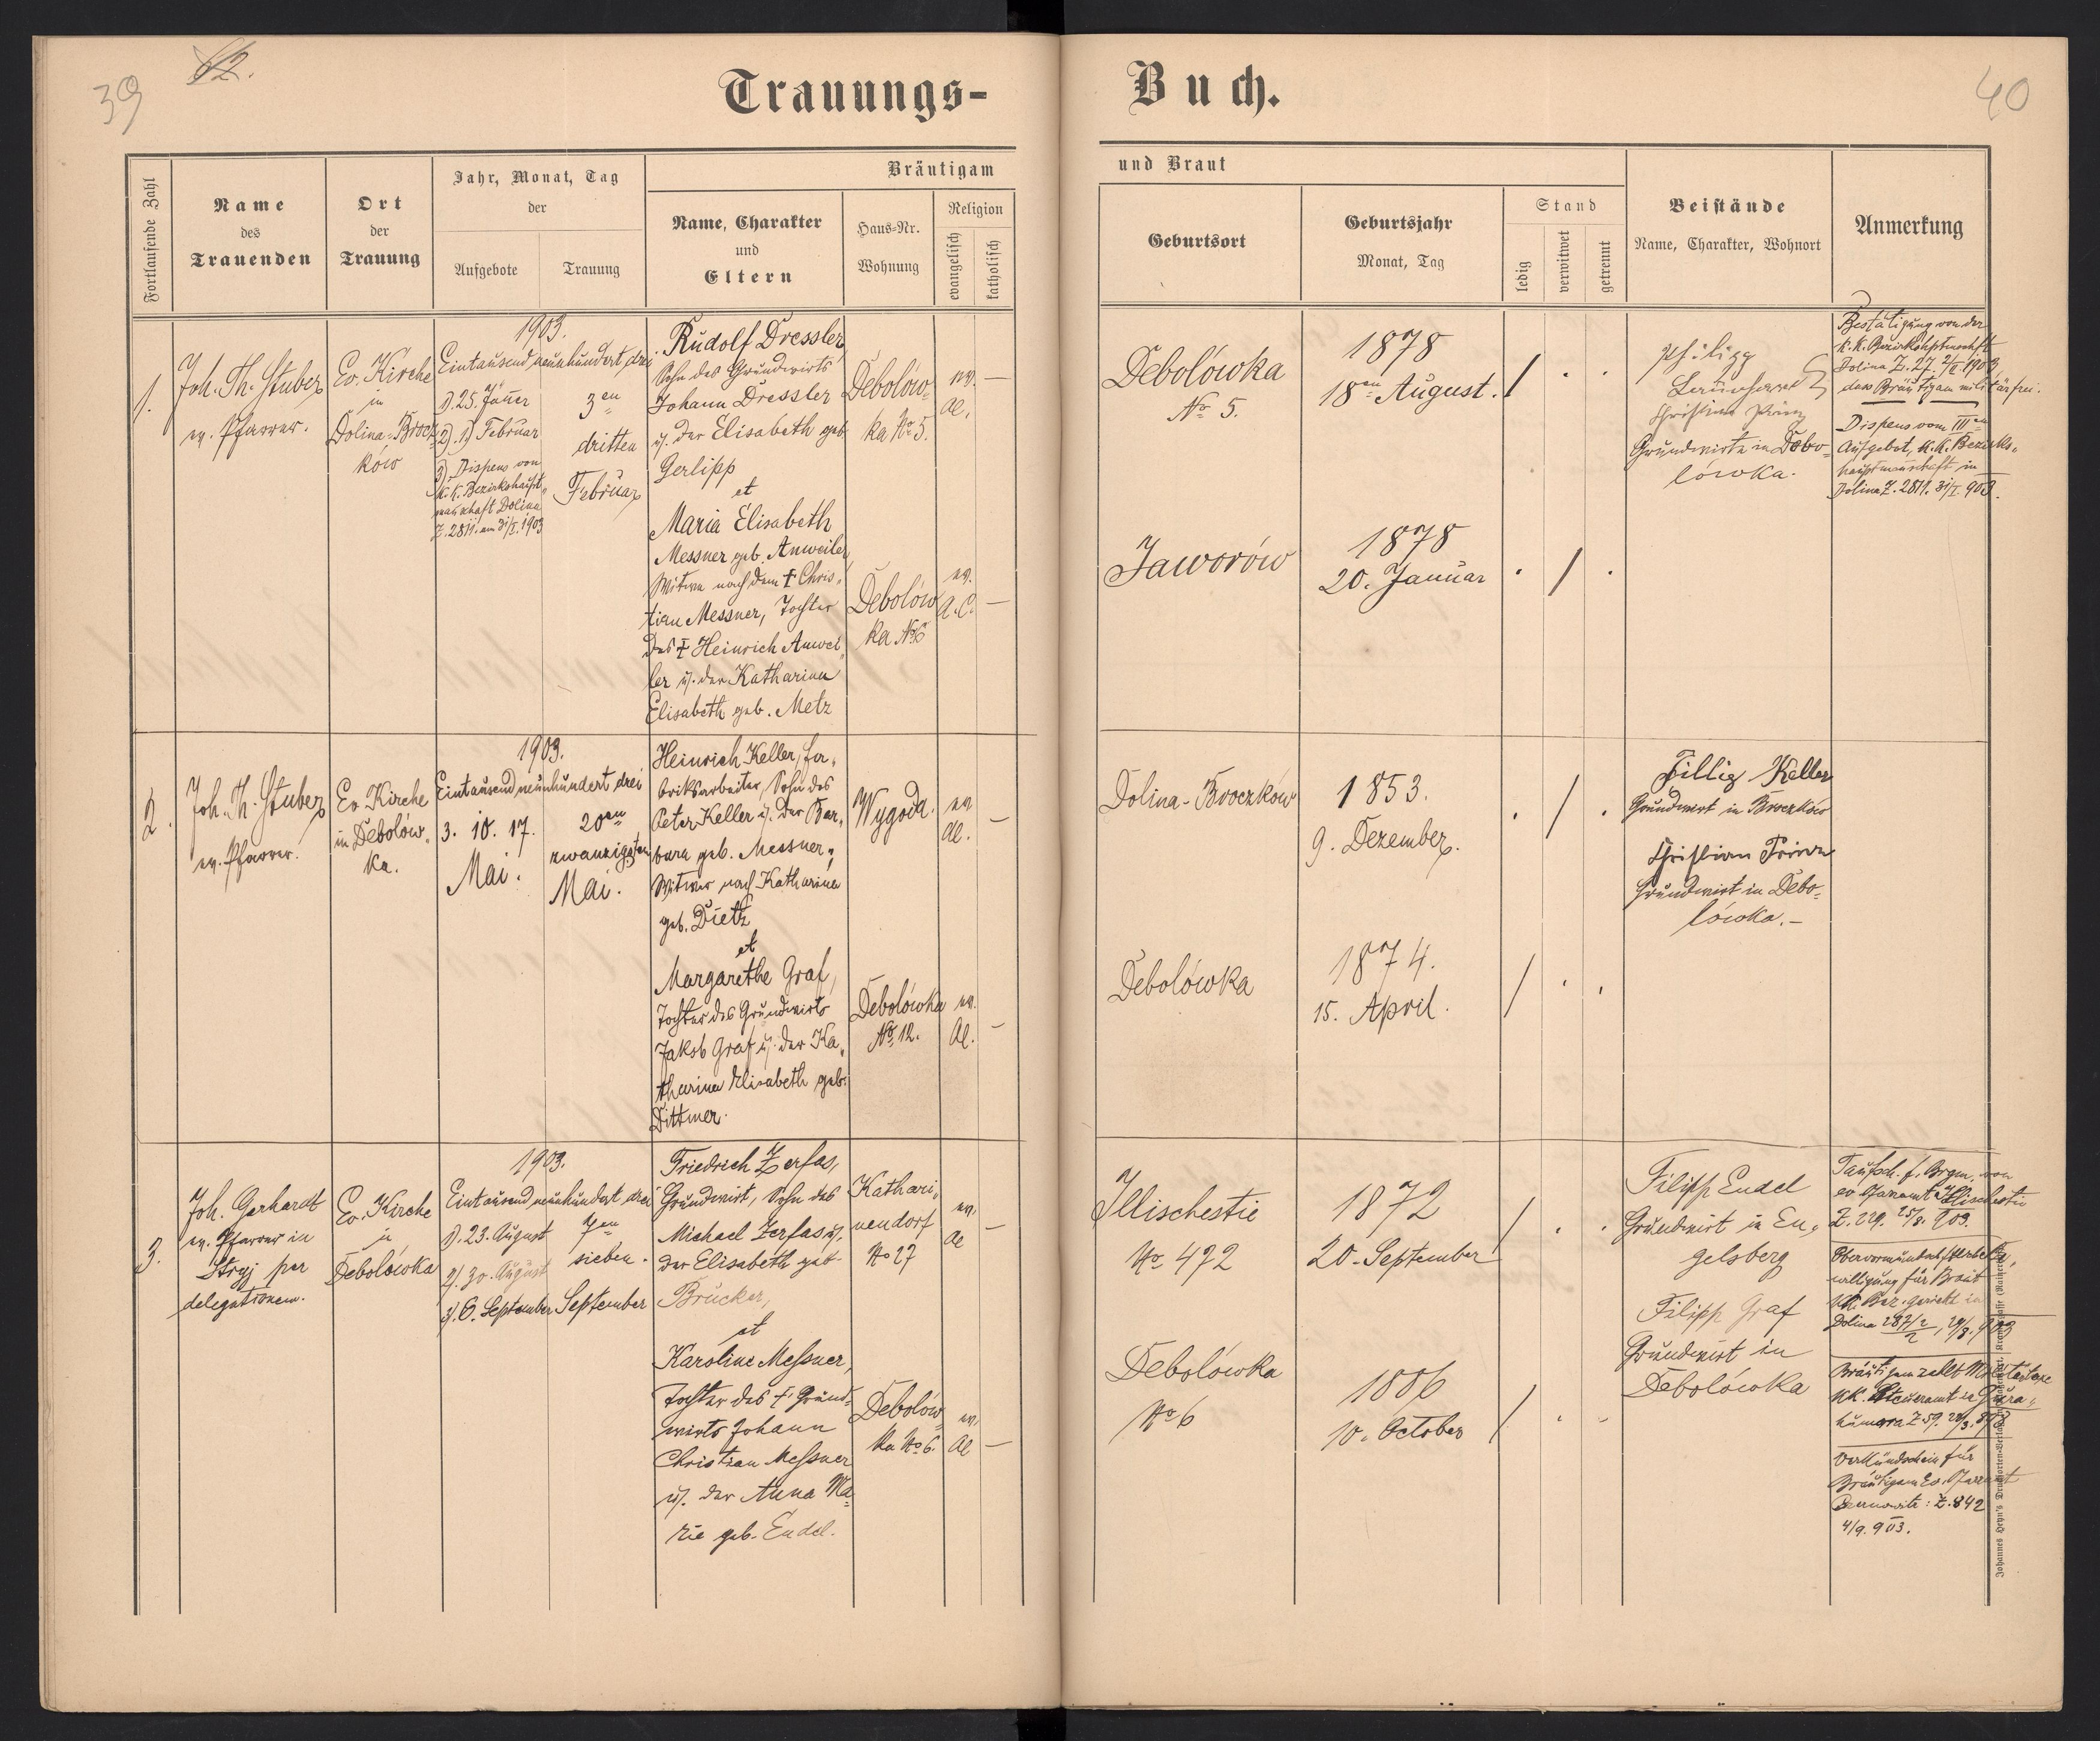 39
12.
Trauungs-
Fortlaufende Zahl
Name
des
Trauenden
Ort
der
Trauung
Jahr, Monat, Tag
der
Aufgebote
Trauung
Bräutigam
Name, Charakter
und
Eltern
Haus-Nr.
Wohnung
Religion
evangelisch
katholisch
1.
Joh. Th. Stuber
ev. Pfarrer.
Ev. Kirche
in
Dolina-Brocz-
ków
1903.
Eintausend neunhundert drei
1) 25. Jänner
2) 1) Februar
3) Dispens von
k. k. Bezirkshaupt-
mannschaft Dolina
Z. 2811. am 31/I. 1903
3en
dritten
Februar
Rudolf Dressler,
Sohn des Grundwirts
Johann Dressler
u. der Elisabeth geb.
Gerlipp
et
Maria Elisabeth
Messner geb. Anweiler
Witwe nach dem † Chris-
tian Messner, Tochter
des † Heinrich Anwei-
ler u. der Katharina
Elisabeth geb. Metz
Debolów-
ka No 5.
ev. —
Debolów
ka No 6
ev.
A. C. —
2.
Joh. Th. Stuber
ev. Pfarrer.
Ev. Kirche
in Debolów-
ka.
1903.
Eintausend neunhundert drei
3. 10. 17.
Mai.
20en
zwanzigsten
Mai.
Heinrich Keller, fa-
briksarbeiter, Sohn des
Peter Keller u. der Bar-
bara geb. Messner,
Witwer nach Katharina
geb. Dietz
et
Margarethe Graf,
Tochter des Grundwirts
Jakob Graf u. der Ka-
tharina Elisabeth geb.
Dittmer.
Wygoda.
ev. —
Debolówka
No 12.
ev. —
3.
Joh. Gerhardt
ev. Pfarrer in
Stryj per
delegationem.
Ev. Kirche
in
Debolówka
1903.
Eintausend neunhundert drei
1). 23. August
2). 30. August
3). 6. September
7en
sieben.
September
Friedrich Zerfas,
Grundwirt, Sohn des
Michael Zerfas u.
der Elisabeth geb.
Brücker,
et
Karoline Messner,
Tochter des † Grund-
wirts Johann
Christian Messner
u. der Anna Ma-
rie geb. Endel.
Kathari-
nendorf
No 27
ev. —
Debolów-
ka No 6.
ev. —
40
Buch.
und Braut
Geburtsort
Geburtsjahr
Monat, Tag
Stand
ledig
verwitwet
getrennt
Beistände
Name, Charakter, Wohnort
Anmerkung
Debolówka
No 5.
1878
18en August.
Philipp
Christian
Grundwirte in Debo-
lówka.
Bestätigung von der
k. k. Bezirkshptmschft
Dolina Z. 27. 2/II. 1903,
dass Bräutigam militärfrei.
Dispens vom IIIen
Aufgebot, k. k. Bezirks-
hauptmannschaft in
Dolina Z. 2811. 31/I. 903.
Jaworów
1878
20. Januar
Dolina-Broczków
1853.
9. Dezember.
Fillip Keller
Grundwirt in Broczków
Christian
Grundwirt in Debo-
lówka.-
Debolówka
1874.
15. April.
Illischestie
No. 472
1872
20. September
Filipp Endel
Grundwirt in En-
gelsberg
Filipp Graf
Grundwirt in
Debolówka
Taufsch. f. Brgm. von
ev. Pfarramt Illischestie
Z. 229. 25/8. 903.
Obervormundschaftl. Be-
willigung für Braut
k. k. Bez. gericht in
Dolina 287/2
Bräutigam zahlt Militärtaxe
k. k. Steueramt in Gura-
humora Z 59.
Verkündschein für
Bräutigam Ev. Pfarramt
Czernowitz: Z. 842
4/9. 903.
Debolówka
No 6
1886
10. October